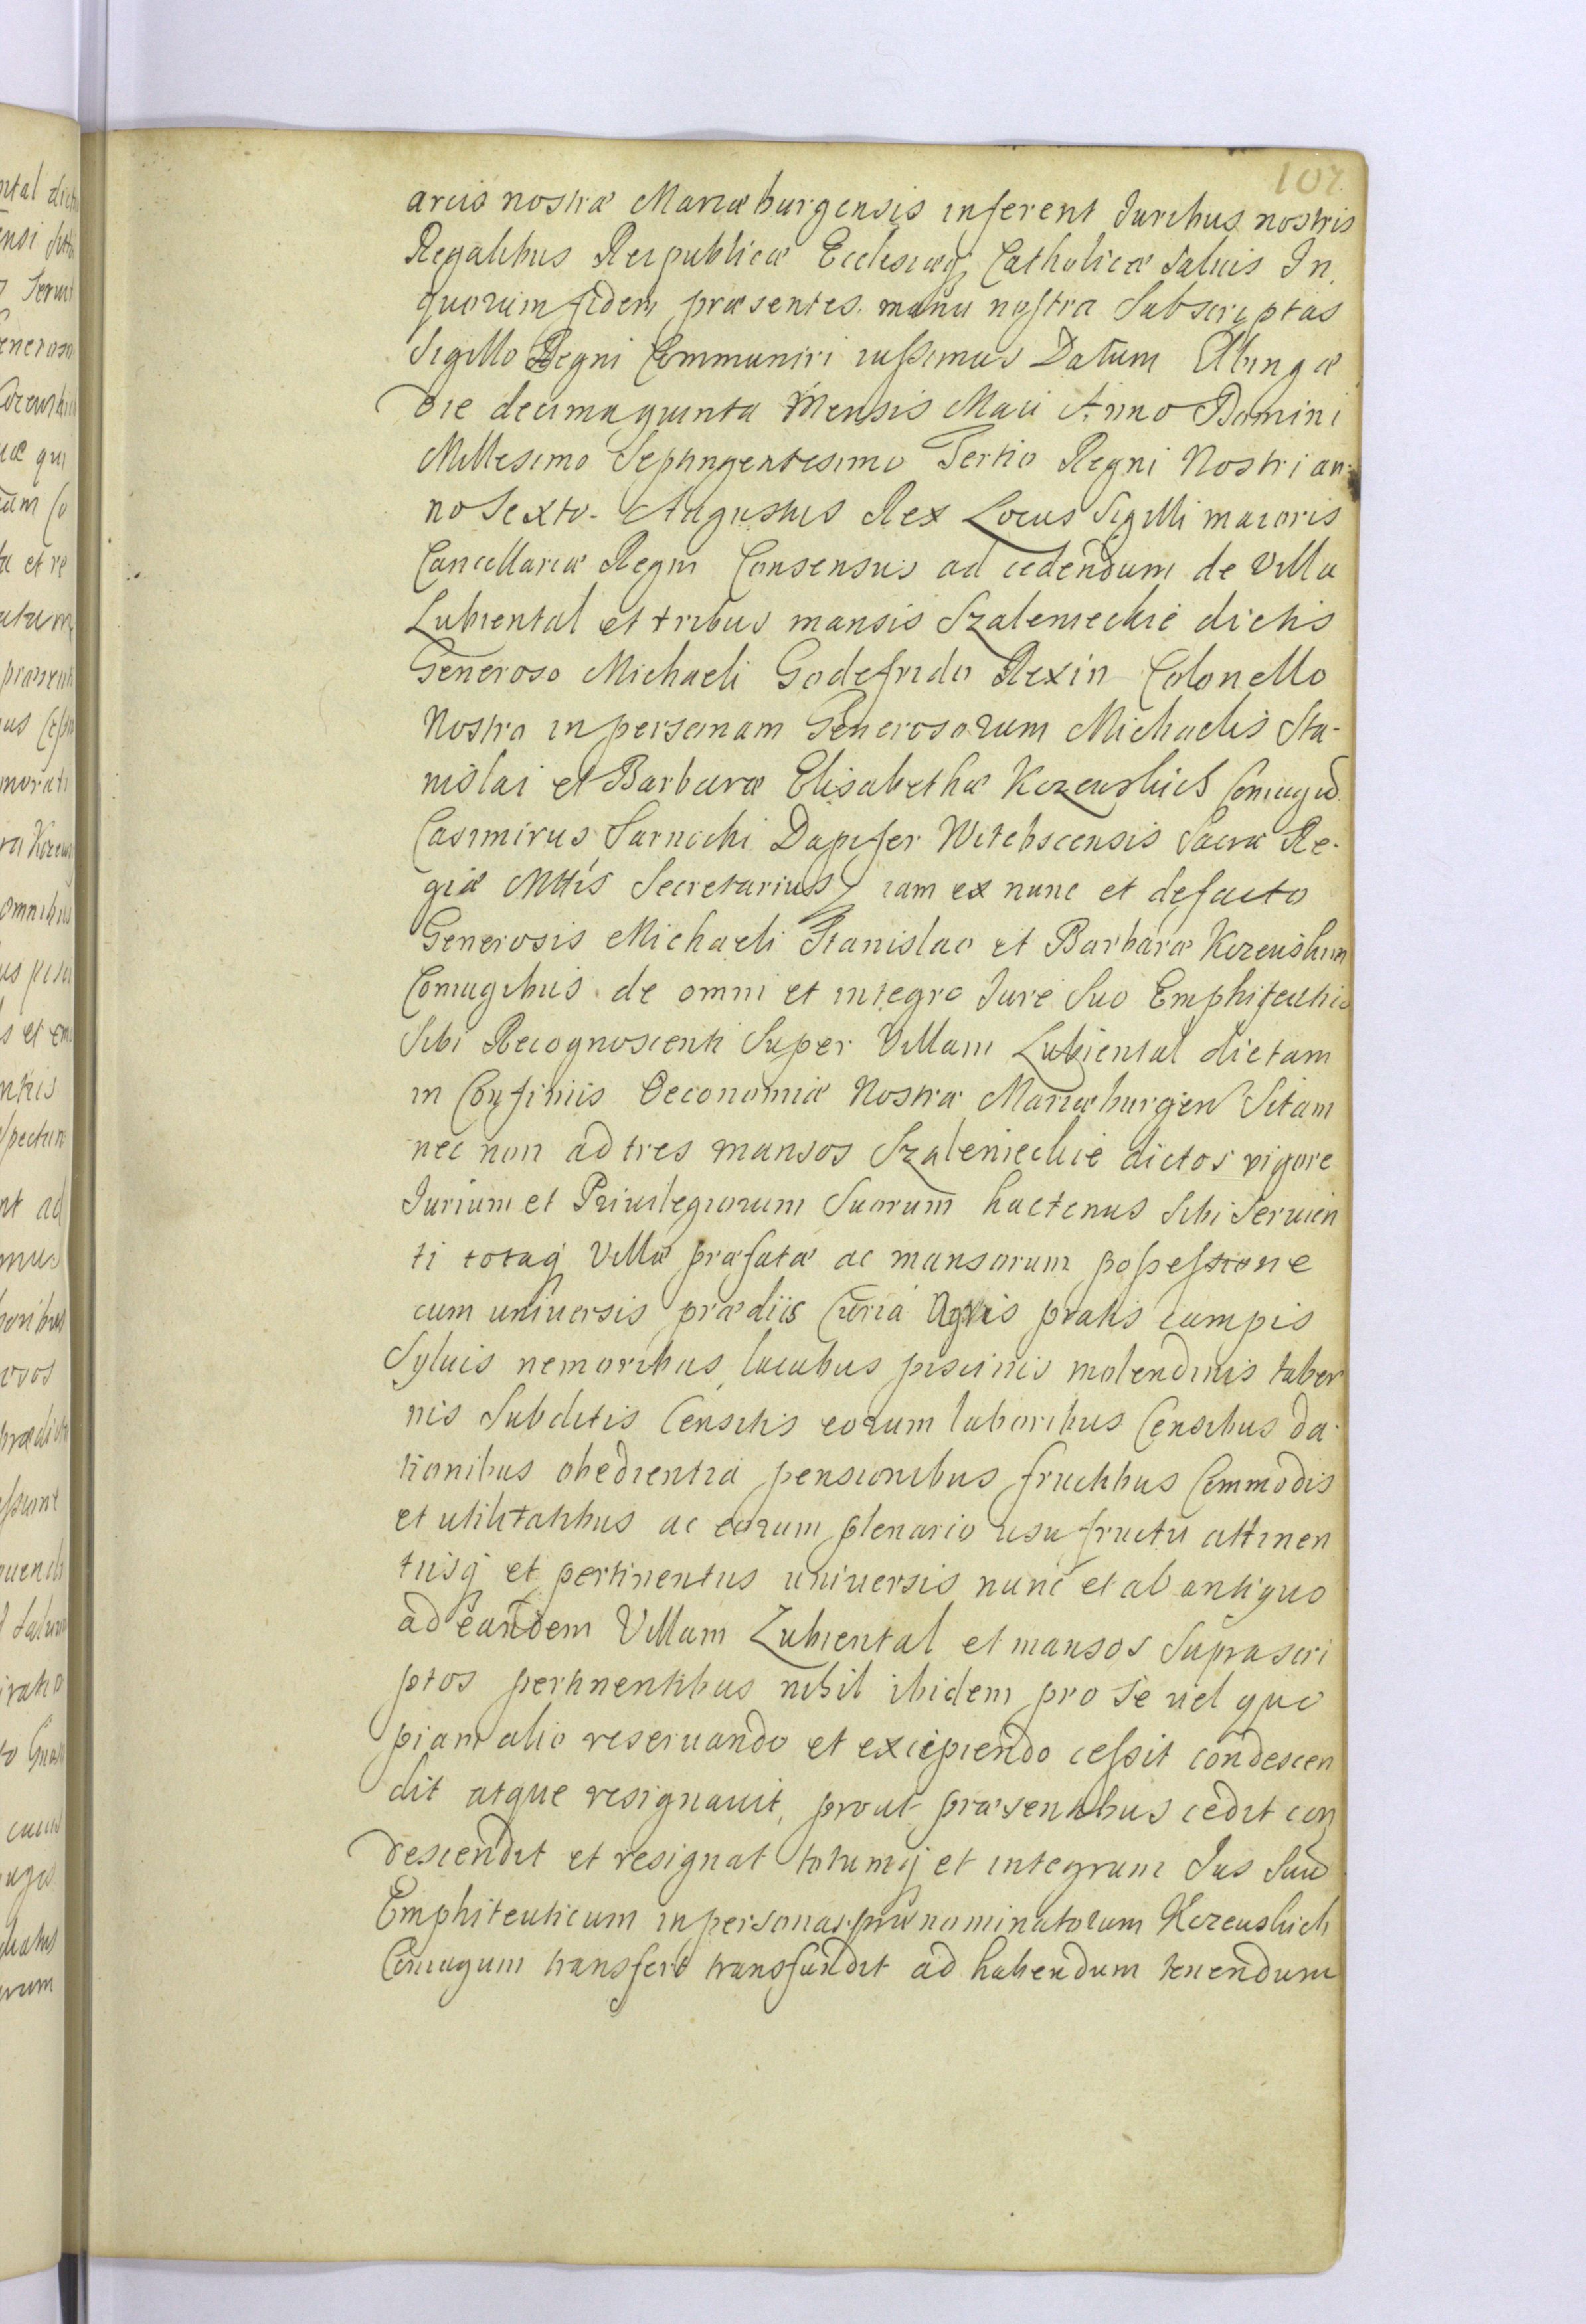 107.
arcis nostræ Mariæburgensis inferent Iuribus nostris
Regalibus Reipublicæ Ecclesiæq; Catholicæ Saluis In
quorum fidem præsentes manu nostra Subscriptas
Sigillo Regni Communiri iussimus Datum Elbingæ
die decima quinta Mensis Maii Anno Domini
Millesimo Septingentesimo Tertio Regni Nostri an-
no Sexto. Augustus Rex Locus Sigilli maioris
Cancellariæ Regni Consensus ad cedendum de Villa
Lubiental et tribus mansis Szalenieckie dictis
Generoso Michaeli Godefrido Rexin Colonello
Nostro in personam Generosorum Michaelis Sta-
nislai et Barbaræ Elisabethæ Kczewskich Coniugũ
Casimirus Sarnicki Dapifer Witebscensis Sacræ Re-
giæ Mttis Secretarius iam ex nunc et defacto
Generosis Michaeli Stanislao et Barbaræ Kczewskim
Coniugibus de omni et integro Iure Suo Emphiteutico
Sibi Recognoscenti Super Villam Lubiental dictam
in Confiniis Oeconomiæ Nostræ Mariæburgen Sitam
nec non ad tres mansos Szalenieckie dictos vigore
Iurium et Priuilegiorum Suorum hactenus Sibi Seruien
ti totaq; Villæ præfatæ ac mansorum possessione
cum uniuersis prædiis Curia Agris pratis campis
Syluis nemoribus lacubus piscinis molendinis taber
nis Subditis Censitis eorum laboribus Censibus da-
tionibus obedientia pensionibus fructibus Commodis
et utilitatibus ac eorum plenario usufructu attinen
tiisq; et pertinentiis uniuersis nunc et ab antiquo
ad eandem Villam Lubiental et mansos Suprascri
ptos pertinentibus nihil ibidem pro se uel quo
piam alio reseruando et excipiendo cessit condescen
dit atque resignauit, prout præsentibus cedit con
descendit et resignat totumq; et integrum Ius Suũ
Emphiteuticum in personas prænominatorum Kczewskich
Coniugum transfert transfundit ad habendum tenendum